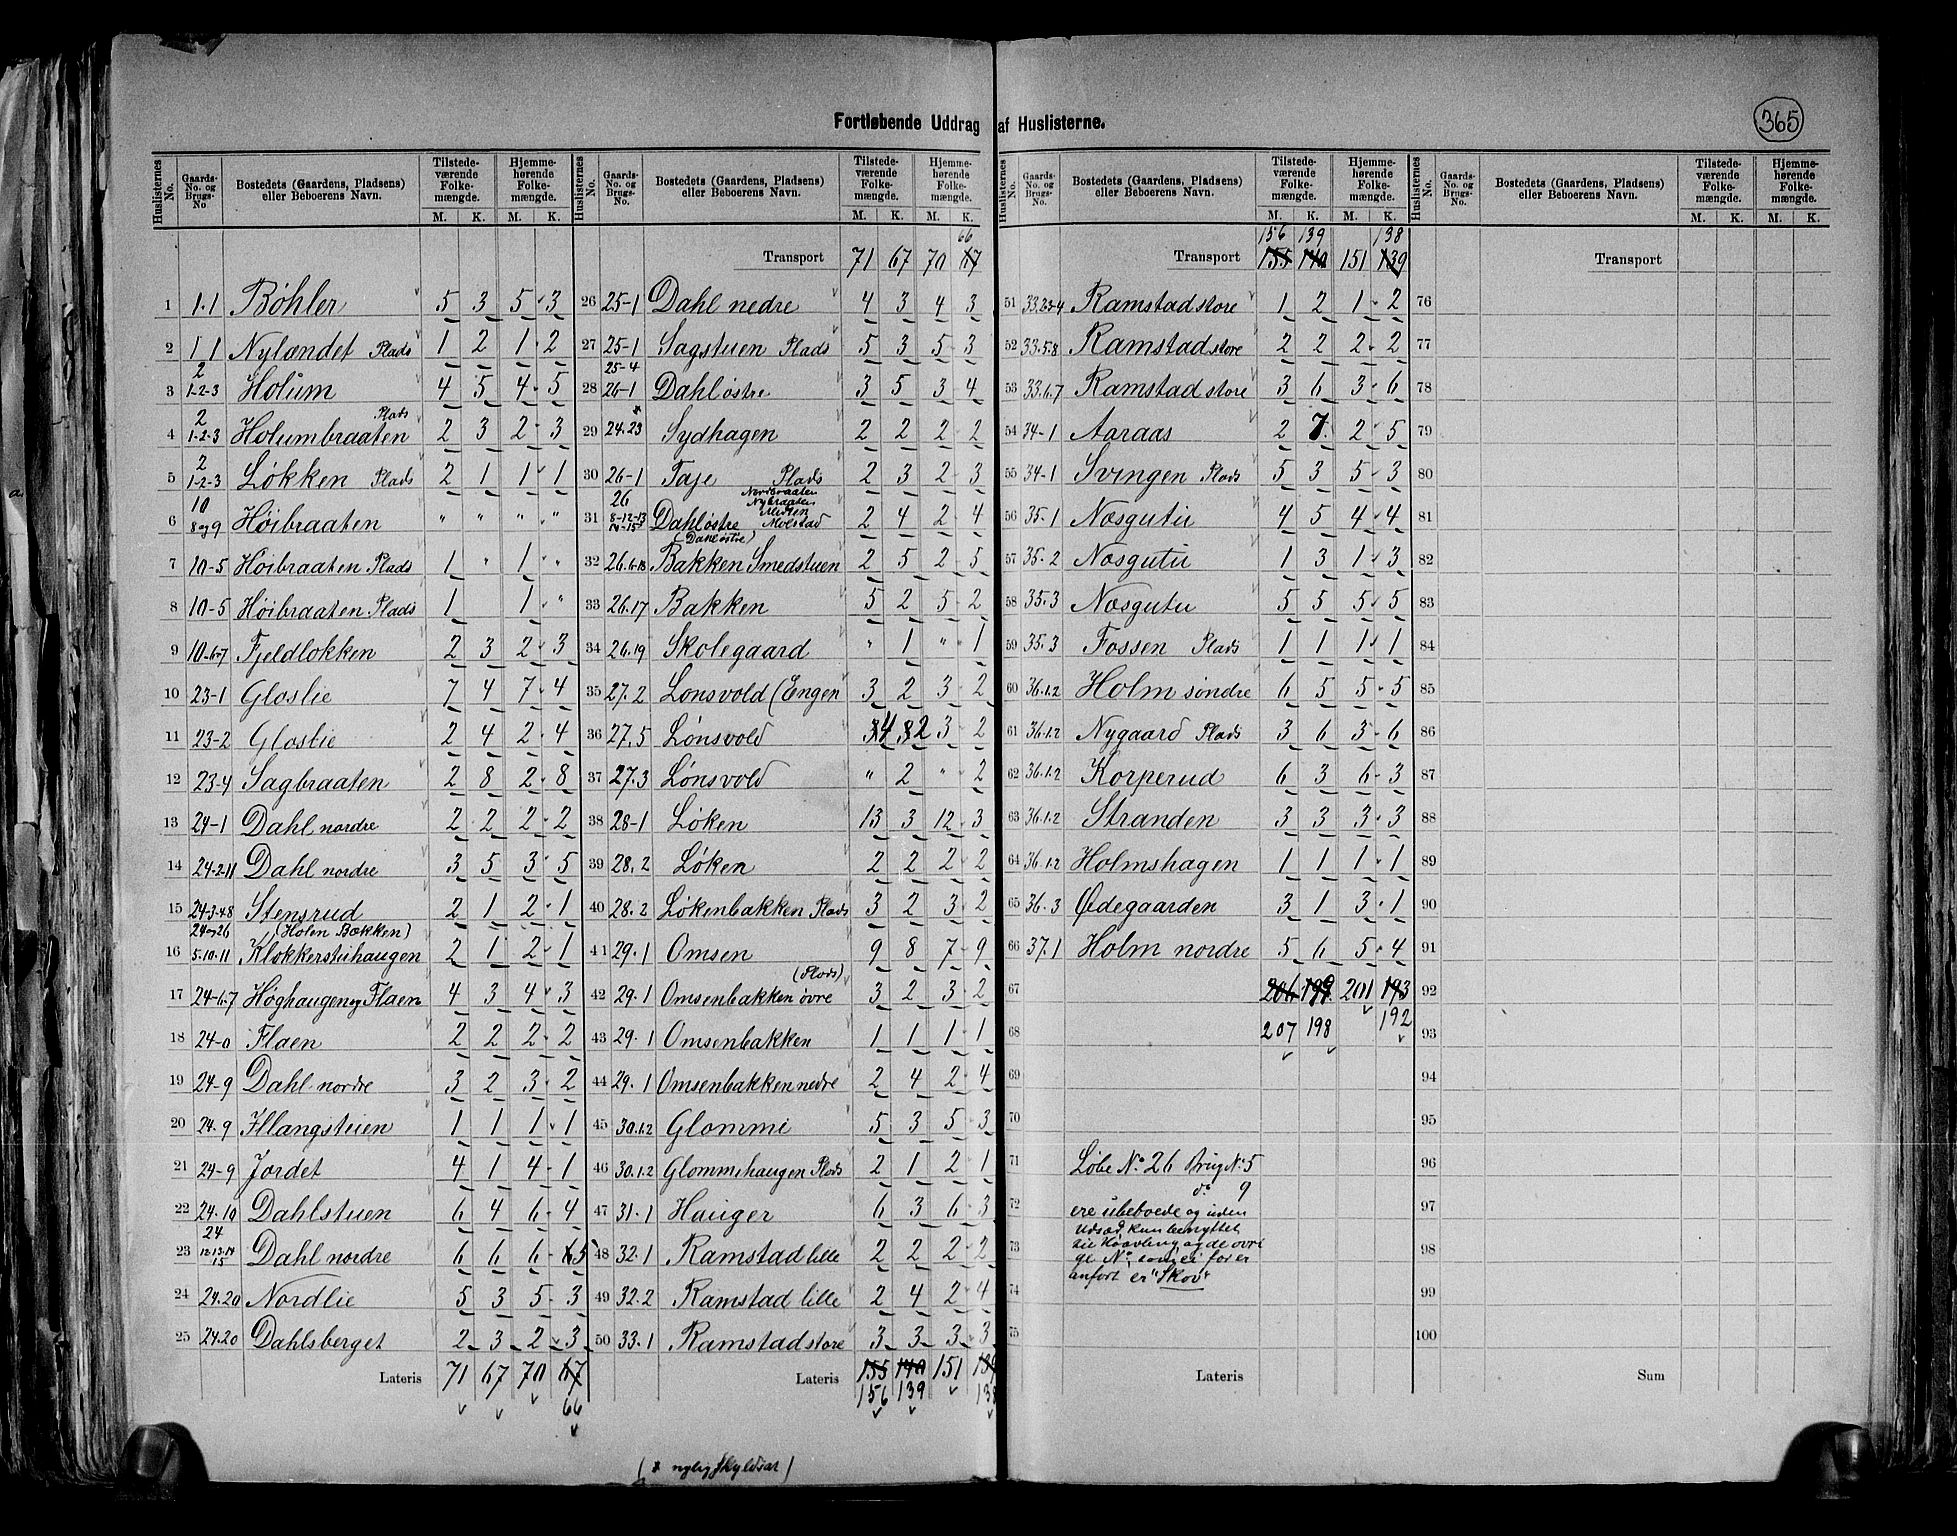 Fortløbende Uddrag af Huslisterne.
365
Huslisternes No. Gaards-No. og Brugs-No. Bostedets (Gaardens, Pladsens) eller Beboerens Navn. Tilstedeværende Folkemængde. M. K. Hjemmehørende Folkemængde. M. K.
1 1.1 Bøhler 5 3 5 3
2 1 1 Nylændet Plads 1 2 1 2
3 2 1-2-3 Holum 4 5 4 5
4 2 1-2-3 Holumbraaten Plads 2 3 2 3
5 2 1-2-3 Løkken Plads 2 1 1 1
6 10 8 og 9 Høibraaten " " " "
7 10-5 Høibraaten Plads 1 " 1 "
8 10-5 Høibraaten Plads 1 1 "
9 10-6-7 Fjeldlokken 2 3 2 3
10 23-1 Gloslie 7 4 7 4
11 23-2 Gloslie 2 4 2 4
12 23-4 Sagbraaten 2 8 2 8
13 24-1 Dahl nordre 2 2 2 2
14 24-2-11 Dahl nordre 3 5 3 5
15 24-3-48 Stensrud 2 1 2 1
16 24 og 26 5.10.11 (Holm Bækken) Klokkerstuhaugen 2 1 2 1
17 24-6-7 Høghaugen og Flaen 4 3 4 3
18 24-0 Flaen 2 2 2 2
19 24-9 Dahl nordre 3 2 3 2
20 24.9 Illangstuen 1 1 1 1
21 24-9 Jordet 4 1 4 1
22 24.10 Dahlstuen 6 4 6 4
23 24 12.13.14 15 Dahl nordre 6 6 6 6 5
24 24.20 Nordlie 5 3 5 3
25 24.20 Dahlsberget 2 3 2 3
Lateris 71 67 70 67
66
Huslisternes No. Gaards-No. og Brugs-No. Bostedets (Gaardens, Pladsens) eller Beboerens Navn. Tilstedeværende Folkemængde. M. K. Hjemmehørende Folkemængde. M. K.
66
Transport 71 67 70 67
26 25-1 Dahl nedre 4 3 4 3
27 25-1 Sagstuen Plads 5 3 5 3
28 25-4 26-1 Dahl østre 3 5 3 4
29 24.23 * Sydhagen 2 2 2 2
30 26-1 Taje Plads 2 3 2 3
31 26 8-12-13 14-15 Dahl østre Nordbraaten Nybraaten Moen Molstad 2 4 2 4
(Dahl østre)
32 26.6-18 Bakken Smedstuen 2 5 2 5
33 26.17 Bakken 5 2 5 2
34 26.19 Skolegaard " 1 " 1
35 27.2 Lonsvold (Engen 3 2 3 2
36 27.5 Lønsvold 3 4 3 2 3 2
37 27.3 Lønsvold " 2 " 2
38 28-1 Løken 13 3 12 3
39 28.2 Løken 2 2 2 2
40 28.2 Løkenbakken Plads 3 2 3 2
41 29.1 Omsen 9 8 7 9
42 29.1 Omsenbakken øvre (Plads) 3 2 3 2
43 29.1 Omsenbakken 1 1 1 1
44 29.1 Omsenbakken nedre 2 4 2 4
45 30.1.2 Glommi 5 3 5 3
46 30.1.2 Glommihaugen Plads 2 1 2 1
47 31.1 Hauger 6 3 6 3
48 32.1 Ramstad lille 2 2 2 2
49 32.2 Ramstad lille 2 4 2 4
50 33.1 Ramstad store 3 3 3 3
Lateris 155 140 151 139
156 139 138
(* nylig skyldsat)
Huslisternes No. Gaards-No. og Brugs-No. Bostedets (Gaardens, Pladsens) eller Beboerens Navn. Tilstedeværende Folkemængde. M. K. Hjemmehørende Folkemængde. M. K.
156 139 138
Transport 155 140 151 139
51 33.23-4 Ramstad store 1 2 1 2
52 33.5.8 Ramstad store 2 2 2 2
53 33.6.7 Ramstad store 3 6 3 6
54 34-1 Aaraas 2 7 2 5
55 34.1 Svingen Plads 5 3 5 3
56 35.1 Næsgutu 4 5 4 4
57 35.2 Næsgutu 1 3 1 3
58 35.3 Næsgutu 5 5 5 5
59 35.3 Fossen Plads 1 1 1 1
60 36.1.2 Holm søndre 6 5 5 5
61 36.1.2 Nygaard Plads 3 6 3 6
62 36.1.2 Korperud 6 3 6 3
63 36.1.2 Stranden 3 3 3 3
64 36.1.2 Holmshagen 1 1 1 1
65 36.3 Ødegaarden 3 1 3 1
66 37.1 Holm nordre 5 6 5 4
67 206 199 201 193
68 207 198 192
69
70
71 Løbe No. 26 Brug No. 5
do 9
72 ere ubeboede og uden
Udsæd, kun benyttet
73 til Havning, og de øvri
ge No., som ei før er
anført er "Skov"
74
75
Lateris
Huslisternes No. Gaards-No. og Brugs-No. Bostedets (Gaardens, Pladsens) eller Beboerens Navn. Tilstedeværende Folkemængde. M. K. Hjemmehørende Folkemængde. M. K.
Transport
76
77
78
79
80
81
82
83
84
85
86
87
88
89
90
91
92
93
94
95
96
97
98
99
100
Sum